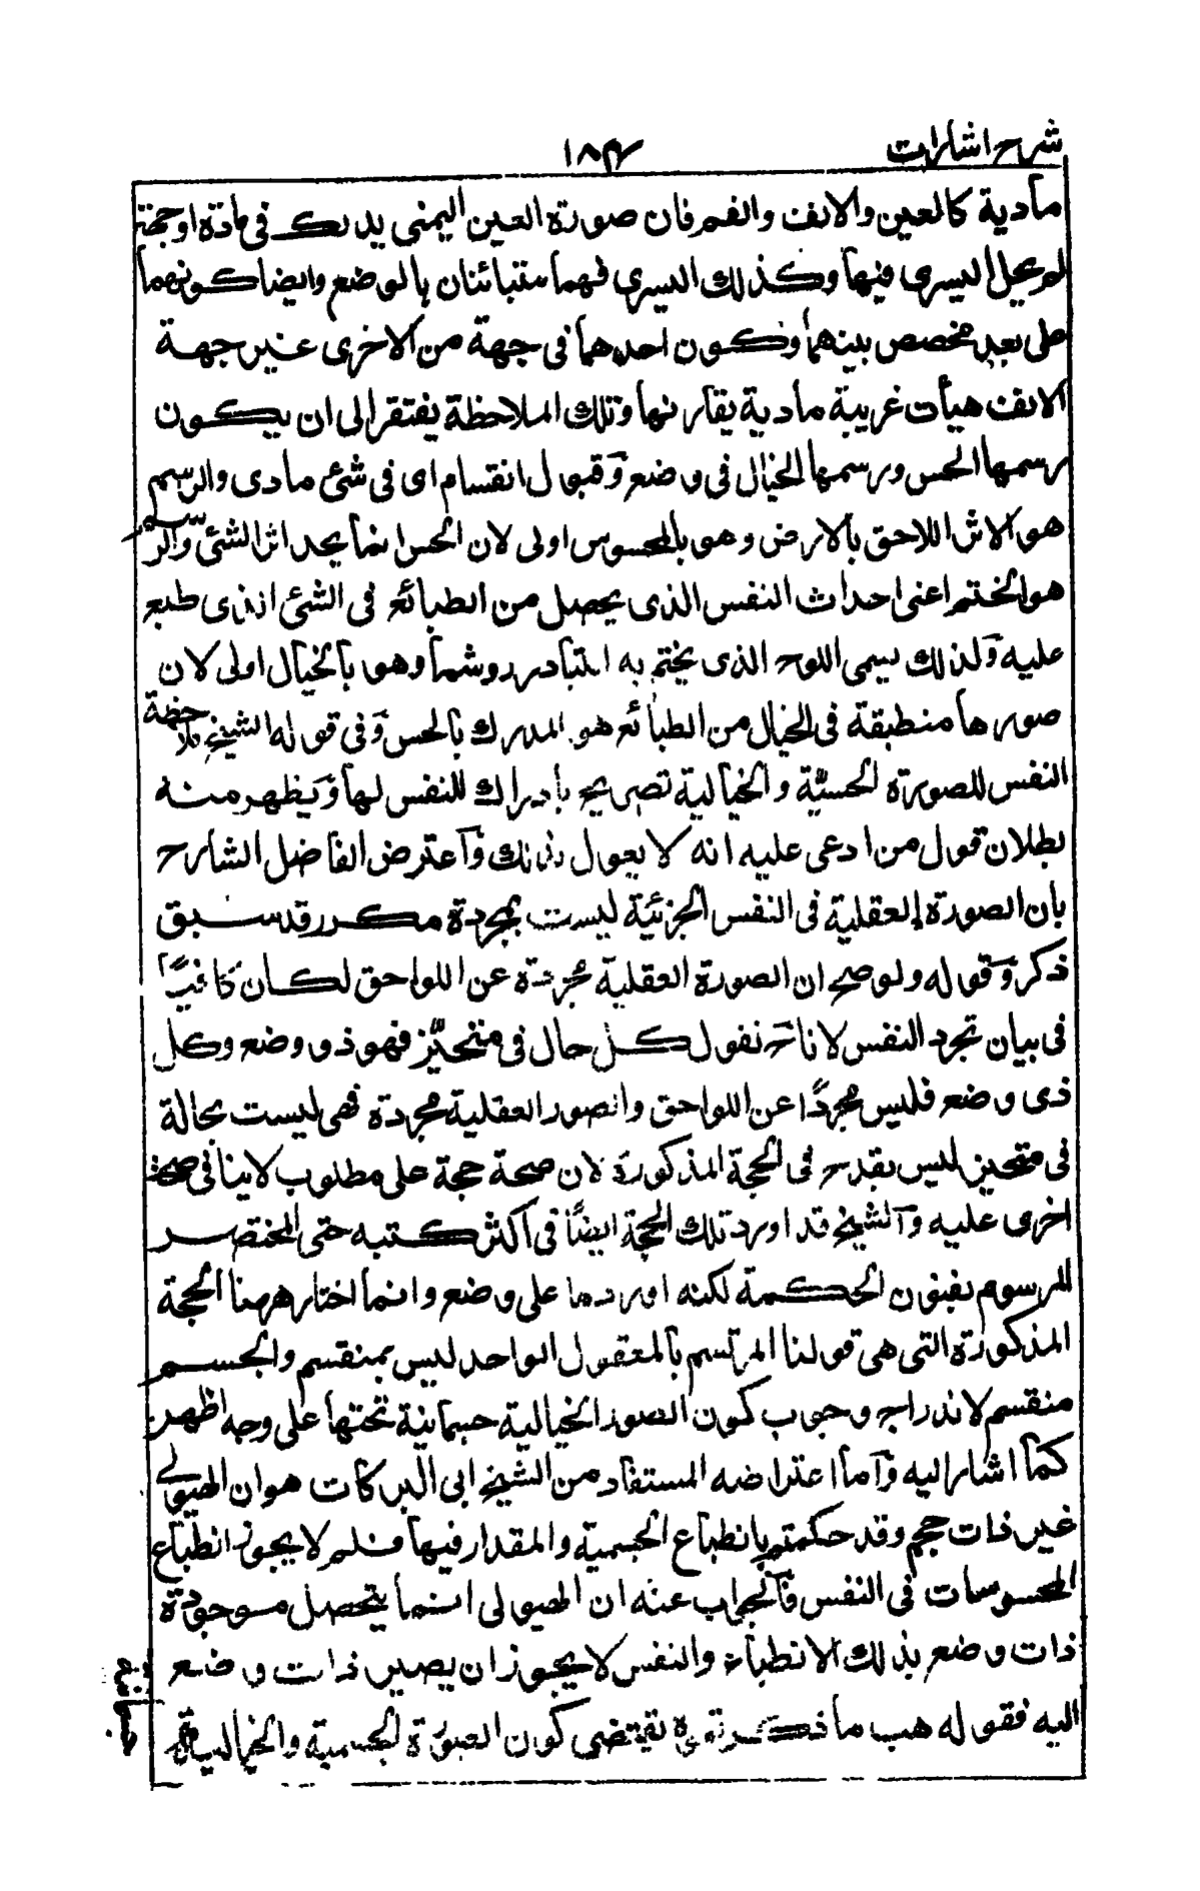 شرح اشارات
١٨٣
مادية كالعين والانف والفم فان صورة العين اليمنى يدرك فى مادة اوجهة
لم يحل اليسرى فيها وكذلك اليسرى فهما متبائنان بالوضع وايضا كونهما
على بعد مخصص بينهما وكون احدهما فى جهة من الاخرى غير جهة
الانف هيأت غريبة مادية يقارنها وتلك الملاحظة يفتقر الى ان يكون
رسمها الحس ورسمها الخيال فى وضع وقبول انقسام اى فى شئ مادى والرسم
هو الاثر اللاحق بالارض وهو بالمحسوس اولى لان الحس انما يجد اثر الشئ والرشم
هو الختم اعنى احداث النفس الذى يحصل من الطبائع فى الشئ الذى طبع
عليه ولذلك يسمى اللوح الذى يختم به البنادر روشما وهو بالخيال اولى لان
صورها منطبقة فى الخيال من الطبائع هو المدرك بالحس وفى قوله الشيخ ملاحظة
النفس للصورة الحسية والخيالية تصريح بادراك للنفس لها ويظهر منه
بطلان قول من ادعى عليه انه لا يقول بذلك واعترض الفاضل الشارح
بان الصورة العقلية فى النفس الجزئية ليست بمجردة مكرر قد سبق
ذكر وقوله ولو صح ان الصورة العقلية مجردة عن اللواحق لكان كافيًا
فى بيان تجرد النفس لانا نقول كل حال فى متحيّز فهو ذو وضع وكل
ذى وضع فليس مجردًا عن اللواحق والصور العقلية مجردة فهى ليست بحالة
فى متحيز ليس بقدح فى الحجة المذكورة لان صحة حجة على مطلوب لا ينافى صحة
اخرى عليه والشيخ قد اورد تلك الحجة ايضًا فى اكثر كتبه حتى المختصر
المرسوم بفنون الحكمة لكنه اوردها على وضع وانما اختار ههنا الحجة
المذكورة التى هى قولنا المرتسم بالمعقول الواحد ليس بمنقسم والجسم
منقسم لاندراج وجوب كون الصور الخيالية جسمانية تحتها على وجه اظهر
كما اشار اليه واما اعتراضه المستفاد من الشيخ ابى البركات هو ان الهيولى
غير ذات حجم وقد حكمتم بانطباع الجسمية والمقدار فيها فلم لا يجوز انطباع
المحسوسات فى النفس فالجواب عنه ان الهيولى انما يتحصل موجودة
ذات وضع بذلك الانطباع والنفس لا يجوز ان يصير ذات وضع
اليه فقوله هب ما ذكرتموه يقتضى كون الصورة الجسمية والخيالية